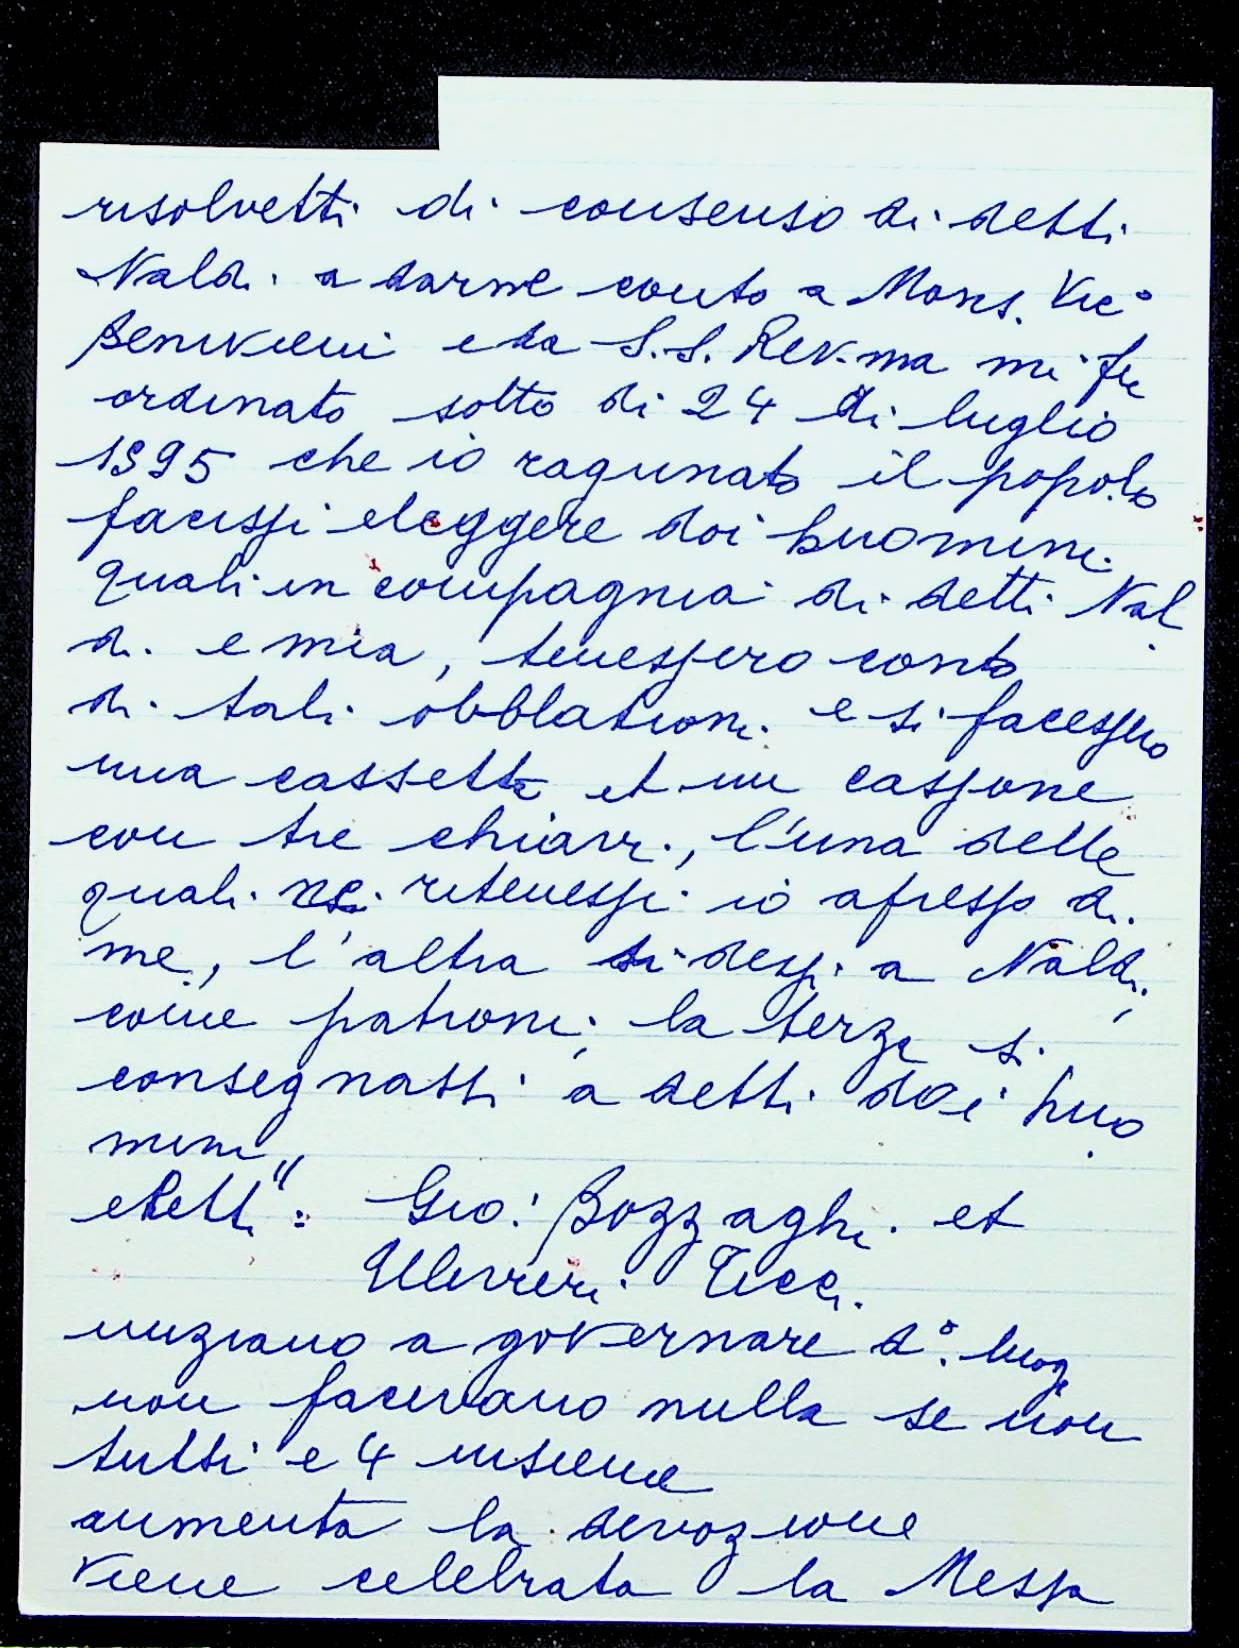 risolvetti di consenso di detti
Naldi a darne conto a Mons. Vic°
Benivieni e da S.S. Rev.ma mi fu
ordinato sotto di 24 di luglio
1595 che io ragunato il popolo
facessi eleggere doi huomini
quali in compagnia di detti Nal
di e mia, tenessero conto
di tali obblationi e si facessero
una cassetta et un cassone
con tre chiavi, l'una delle
quali ritenessi io apresso di
me, l'altra si dessi a Naldi,
come patroni, la terza si
consegnassi a detti doi huo
mini"
eletti: Gio: Bozzaghi et
Ulivieri Ticci.
iniziano a governare d°. luogo
non facevano nulla se non
tutti e 4 insieme
aumenta la devozione
viene celebrata la Messa